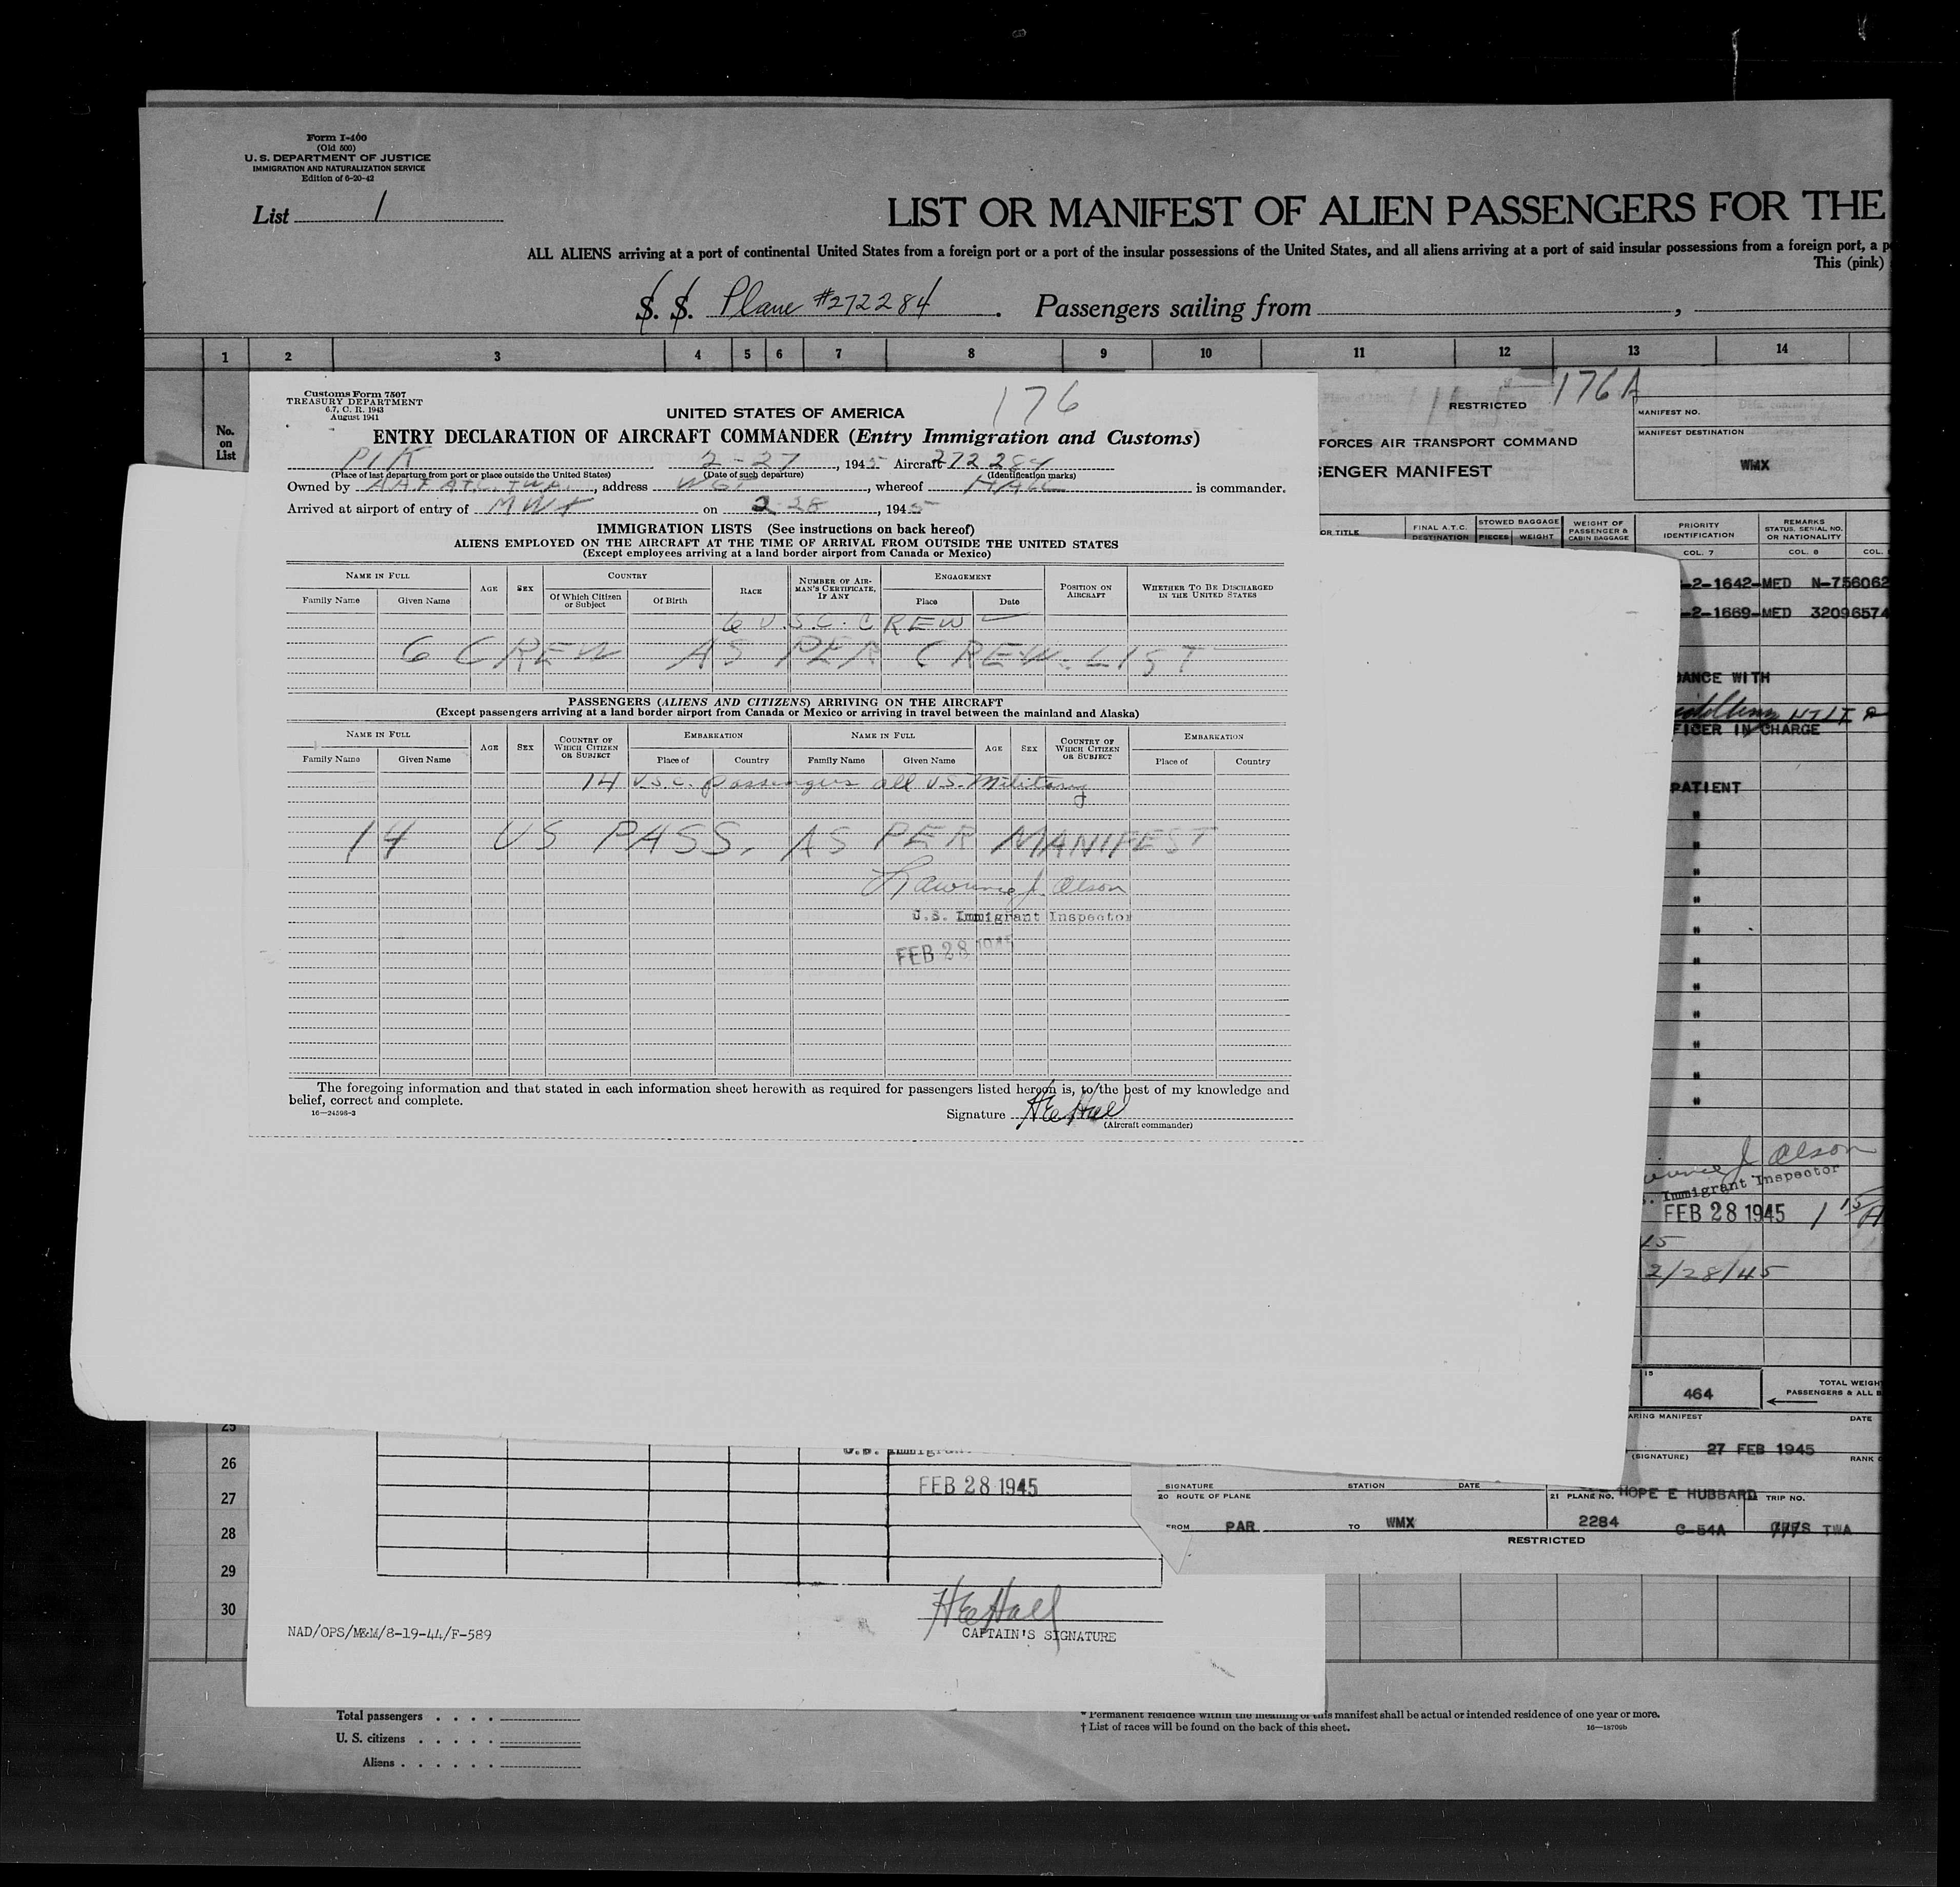 Form I-400
(Old 500)
U. S. DEPARTMENT OF JUSTICE
IMMIGRATION AND NATURALIZATION SERVICE
Edition of 6-20-42
List 1
LIST OR MANIFEST OF ALIEN PASSENGERS FOR THE
ALL ALIENS arriving at a port of continental United States from a foreign port or a port of the insular possessions of the United States, and all aliens arriving at a port of said insular possessions from a foreign port, a p
This (pink)
S. S. Plane #272284 . Passengers sailing from ,
1 2 3 4 5 6 7 8 9 10 11 12 13 14
No. on List
Customs Form 7507
TREASURY DEPARTMENT
6.7, C. R. 1943
August 1941
176
UNITED STATES OF AMERICA
ENTRY DECLARATION OF AIRCRAFT COMMANDER (Entry Immigration and Customs)
PIK 2-27, 1945 Aircraft 272284
(Place of last departure from port or place outside the United States) (Date of such departure) (Identification marks)
Owned by AAF ATC, TWA, address WGT, whereof HALL is commander.
Arrived at airport of entry of on 2 28, 1945
IMMIGRATION LISTS (See instructions on back hereof)
ALIENS EMPLOYED ON THE AIRCRAFT AT THE TIME OF ARRIVAL FROM OUTSIDE THE UNITED STATES
(Except employees arriving at a land border airport from Canada or Mexico)
NAME IN FULL AGE SEX COUNTRY RACE NUMBER OF AIRMAN'S CERTIFICATE, IF ANY ENGAGEMENT POSITION ON AIRCRAFT WHETHER TO BE DISCHARGED IN THE UNITED STATES
Family Name Given Name Of Which Citizen or Subject Of Birth Place Date
6 U.S.C. CREW
6 CREW AS PER CREW LIST
PASSENGERS (ALIENS AND CITIZENS) ARRIVING ON THE AIRCRAFT
(Except passengers arriving at a land border airport from Canada or Mexico or arriving in travel between the mainland and Alaska)
NAME IN FULL AGE SEX COUNTRY OF WHICH CITIZEN OR SUBJECT EMBARKATION NAME IN FULL AGE SEX COUNTRY OF WHICH CITIZEN OR SUBJECT EMBARKATION
Family Name Given Name Place of Country Family Name Given Name Place of Country
14 U.S.C. passengers all U.S. Military
14 US PASS. AS PER MANIFEST
Lawrence J. Olson
U.S. Immigrant Inspector
FEB 28 1945
The foregoing information and that stated in each information sheet herewith as required for passengers listed hereon is, to the best of my knowledge and
belief, correct and complete.
16—24598-3
Signature HEHall
(Aircraft commander)
176A
RESTRICTED
FORCES AIR TRANSPORT COMMAND
SENGER MANIFEST
MANIFEST NO.
MANIFEST DESTINATION
WMX
OR TITLE FINAL A.T.C. DESTINATION STOWED BAGGAGE PIECES WEIGHT WEIGHT OF PASSENGER & CABIN BAGGAGE PRIORITY IDENTIFICATION REMARKS STATUS, SERIAL NO. OR NATIONALITY
COL. 7 COL. 8 COL.
-2-1642-MED N-756062
-2-1669-MED 32096574
DANCE WITH
FICER IN CHARGE
PATIENT
"
"
"
"
"
"
"
"
"
"
"
J Olson
. Immigrant Inspector
FEB 28 1945
45
2/28/45
19
464
TOTAL WEIGH
PASSENGERS & ALL B
ARING MANIFEST DATE
27 FEB 1945
(SIGNATURE) RANK
SIGNATURE STATION DATE
HOPE E HUBBARD
20 ROUTE OF PLANE 21 PLANE NO. TRIP NO.
FROM PAR TO WMX 2284 C-54A TWA
RESTRICTED
25
26
27
28
29
30
U.S. Immigran
FEB 28 1945
HEHall
CAPTAIN'S SIGNATURE
NAD/OPS/M&M/8-19-44/F-589
Total passengers . . . .
U. S. citizens . . . . .
Aliens . . . . . .
* Permanent residence within the meaning of this manifest shall be actual or intended residence of one year or more.
† List of races will be found on the back of this sheet.
16—18709b